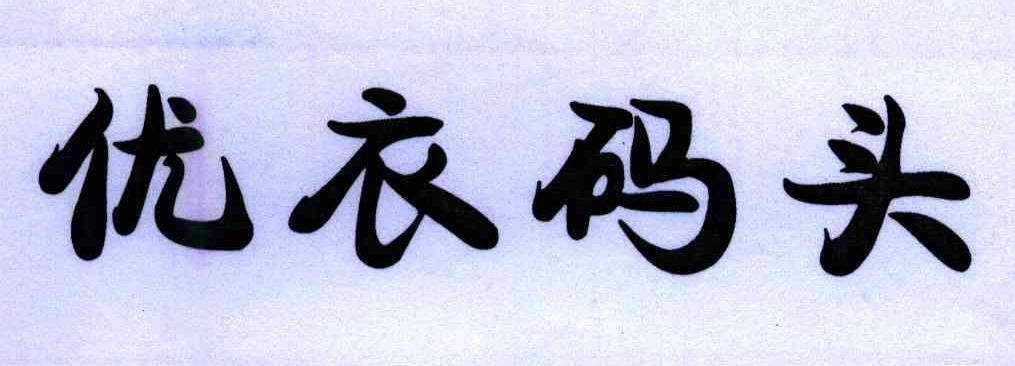 优衣码头